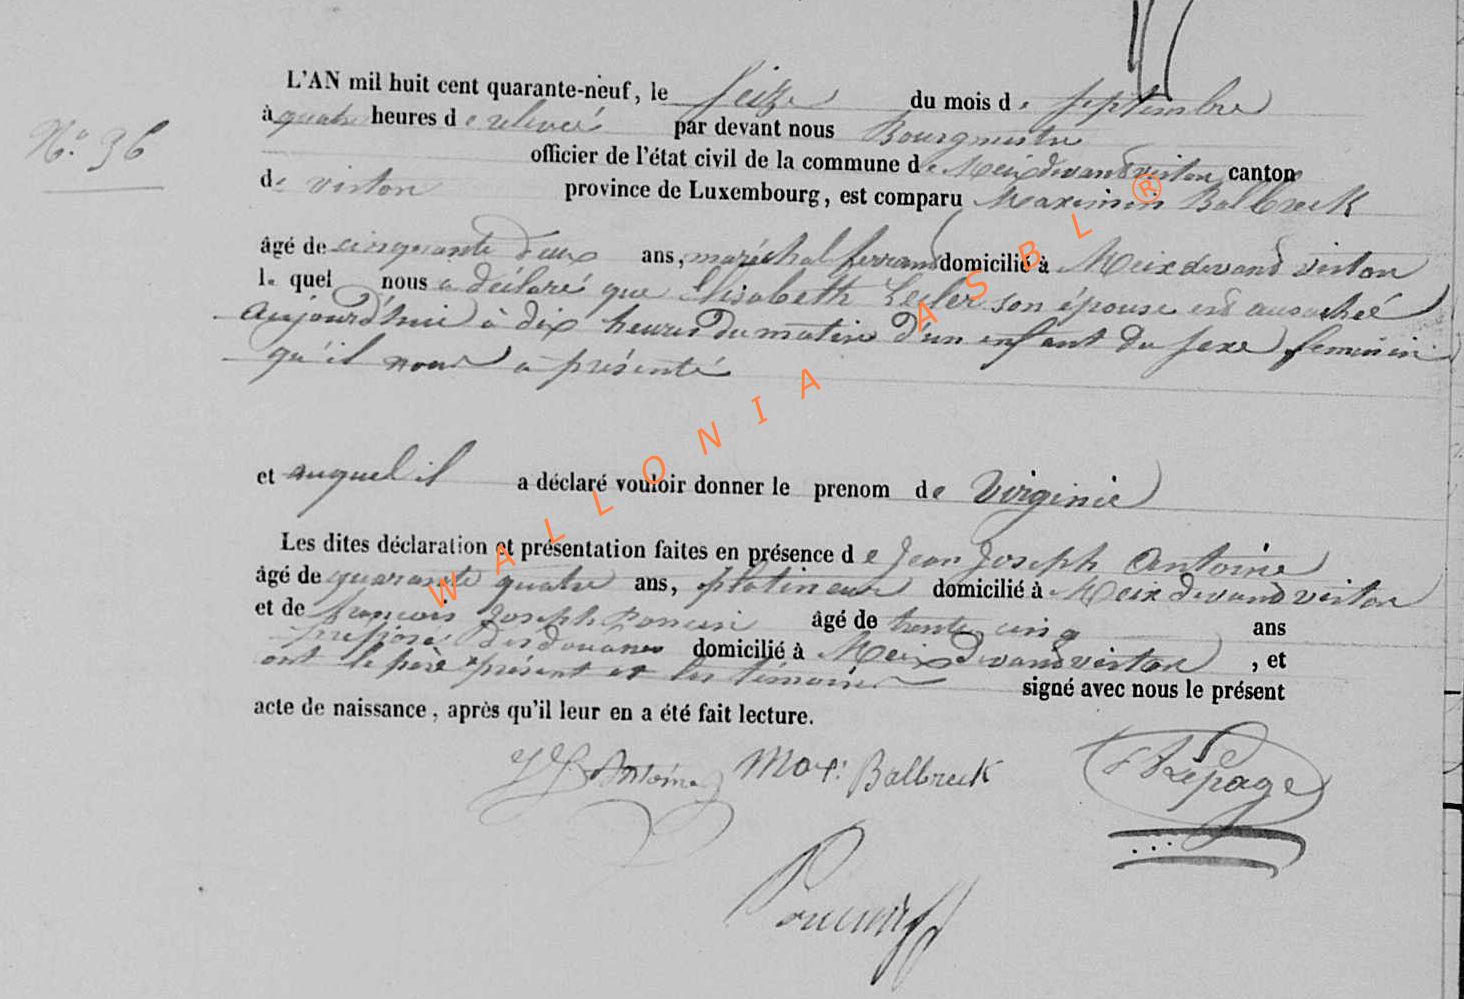 L'AN mil huit cent quarante-neuf, le seize du mois de septembre
N.º 36
à quatre heures de relevée par devant nous Bourgmestre
officier de l'état civil de la commune de Meix devand virton canton
de virton province de Luxembourg, est comparu Maximin Balbreck
âgé de cinquante deux ans, maréchal ferrand domicilié à Meix devand virton
le quel nous a déclaré que Elisabeth son épouse est accouchée
Aujourd'hui à dix heures du matin d'un enfant du sexe feminin
qu'il nous a présenté
et auquel il a déclaré vouloir donner le prenom de Virginie
Les dites déclaration et présentation faites en présence de Jean Joseph Antoine
âgé de quarante quatre ans, platineur domicilié à Meix devand virton
et de françois Joseph Poncin âgé de trente cinq ans
préposé des douanes domicilié à Meix devand virton , et
ont le père présent et les témoins signé avec nous le présent
acte de naissance, après qu'il leur en a été fait lecture.
Antoine Max: Balbreck Lepage
Poncin
WALLONIA ASBL ®